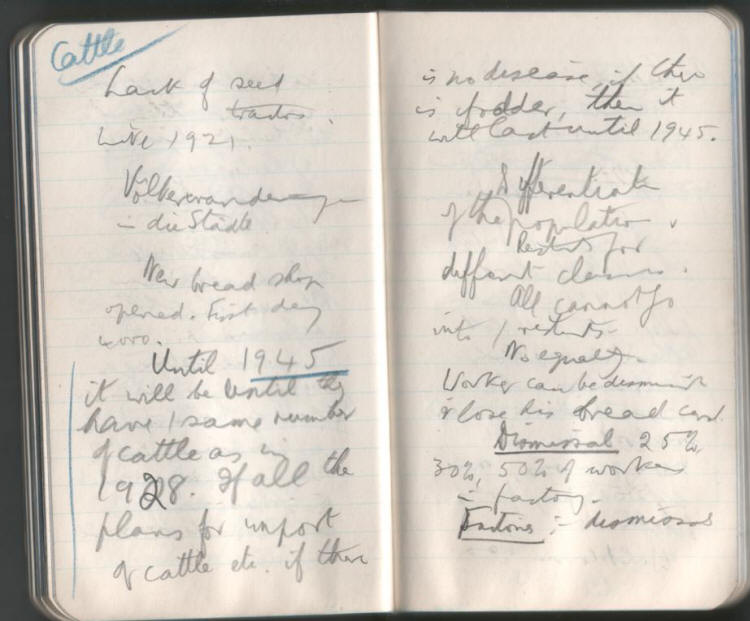 Cattle
Lack of seed
tractors.
Like 1921.
Völkerwanderung
in die Städte
New bread shop
opened. First day
4000.
Until 1945
it will be until they
have / same number
of cattle as in
1928. If all the
plans for import
of cattle etc. if there
is no disease, if there
is fodder, then it
will last until 1945.
Differentiate
of the population.
Restrts for
different classes.
All cannot go
into / restrts.
No equality.
Worker can be dismissed
& lose his bread card.
Dismissal 25%,
30%, 50% of workers
in factory.
Factories :- dismissal